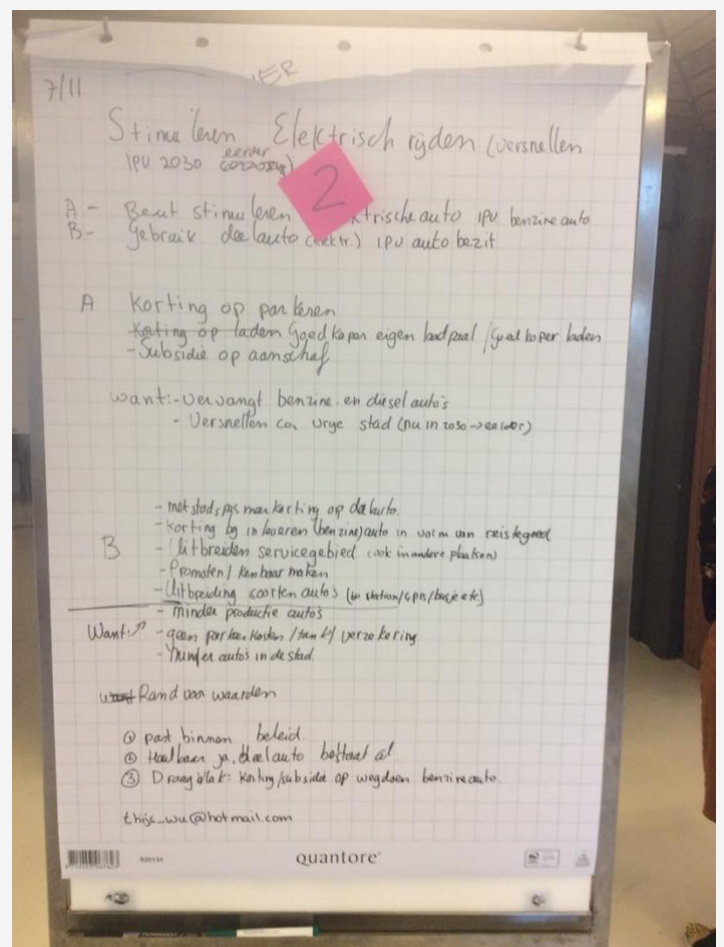 7/11
Stimuleren Elektrisch rijden (versnellen
IPV 2030 eerder
2
A - stimuleren ktrische auto IPV benzine auto
B- Gebruik deelauto (elektr.) IPV auto bezit
A Korting op parkeren
-Korting op laden Goedkoper eigen laadpaal / Goedkoper laden
- Subsidie op aanschaf
Want:- Vervangt benzine en diesel auto's
- Versnellen vrije stad (nu in 2030 -> eerder)
- met stadspas meer korting op deelauto.
- Korting bij inleveren (benzine)auto in vorm van reistegoed
B - Uitbreiden servicegebied (ook in andere plaatsen)
- Promoten / Kenbaar maken
- Uitbreiding soorten auto's (bv station/4 pers/busje etc)
- minder productie auto's
Want: - geen parkeerkosten / / verzekering
- minder auto's in de stad
want Rand voorwaarden
① past binnen beleid.
② Haalbaar ja, deelauto bestaat al
③ Draagvlak: Korting/subsidie op wegdoen benzineauto.
thijs_wu@hotmail.com
920134
quantore